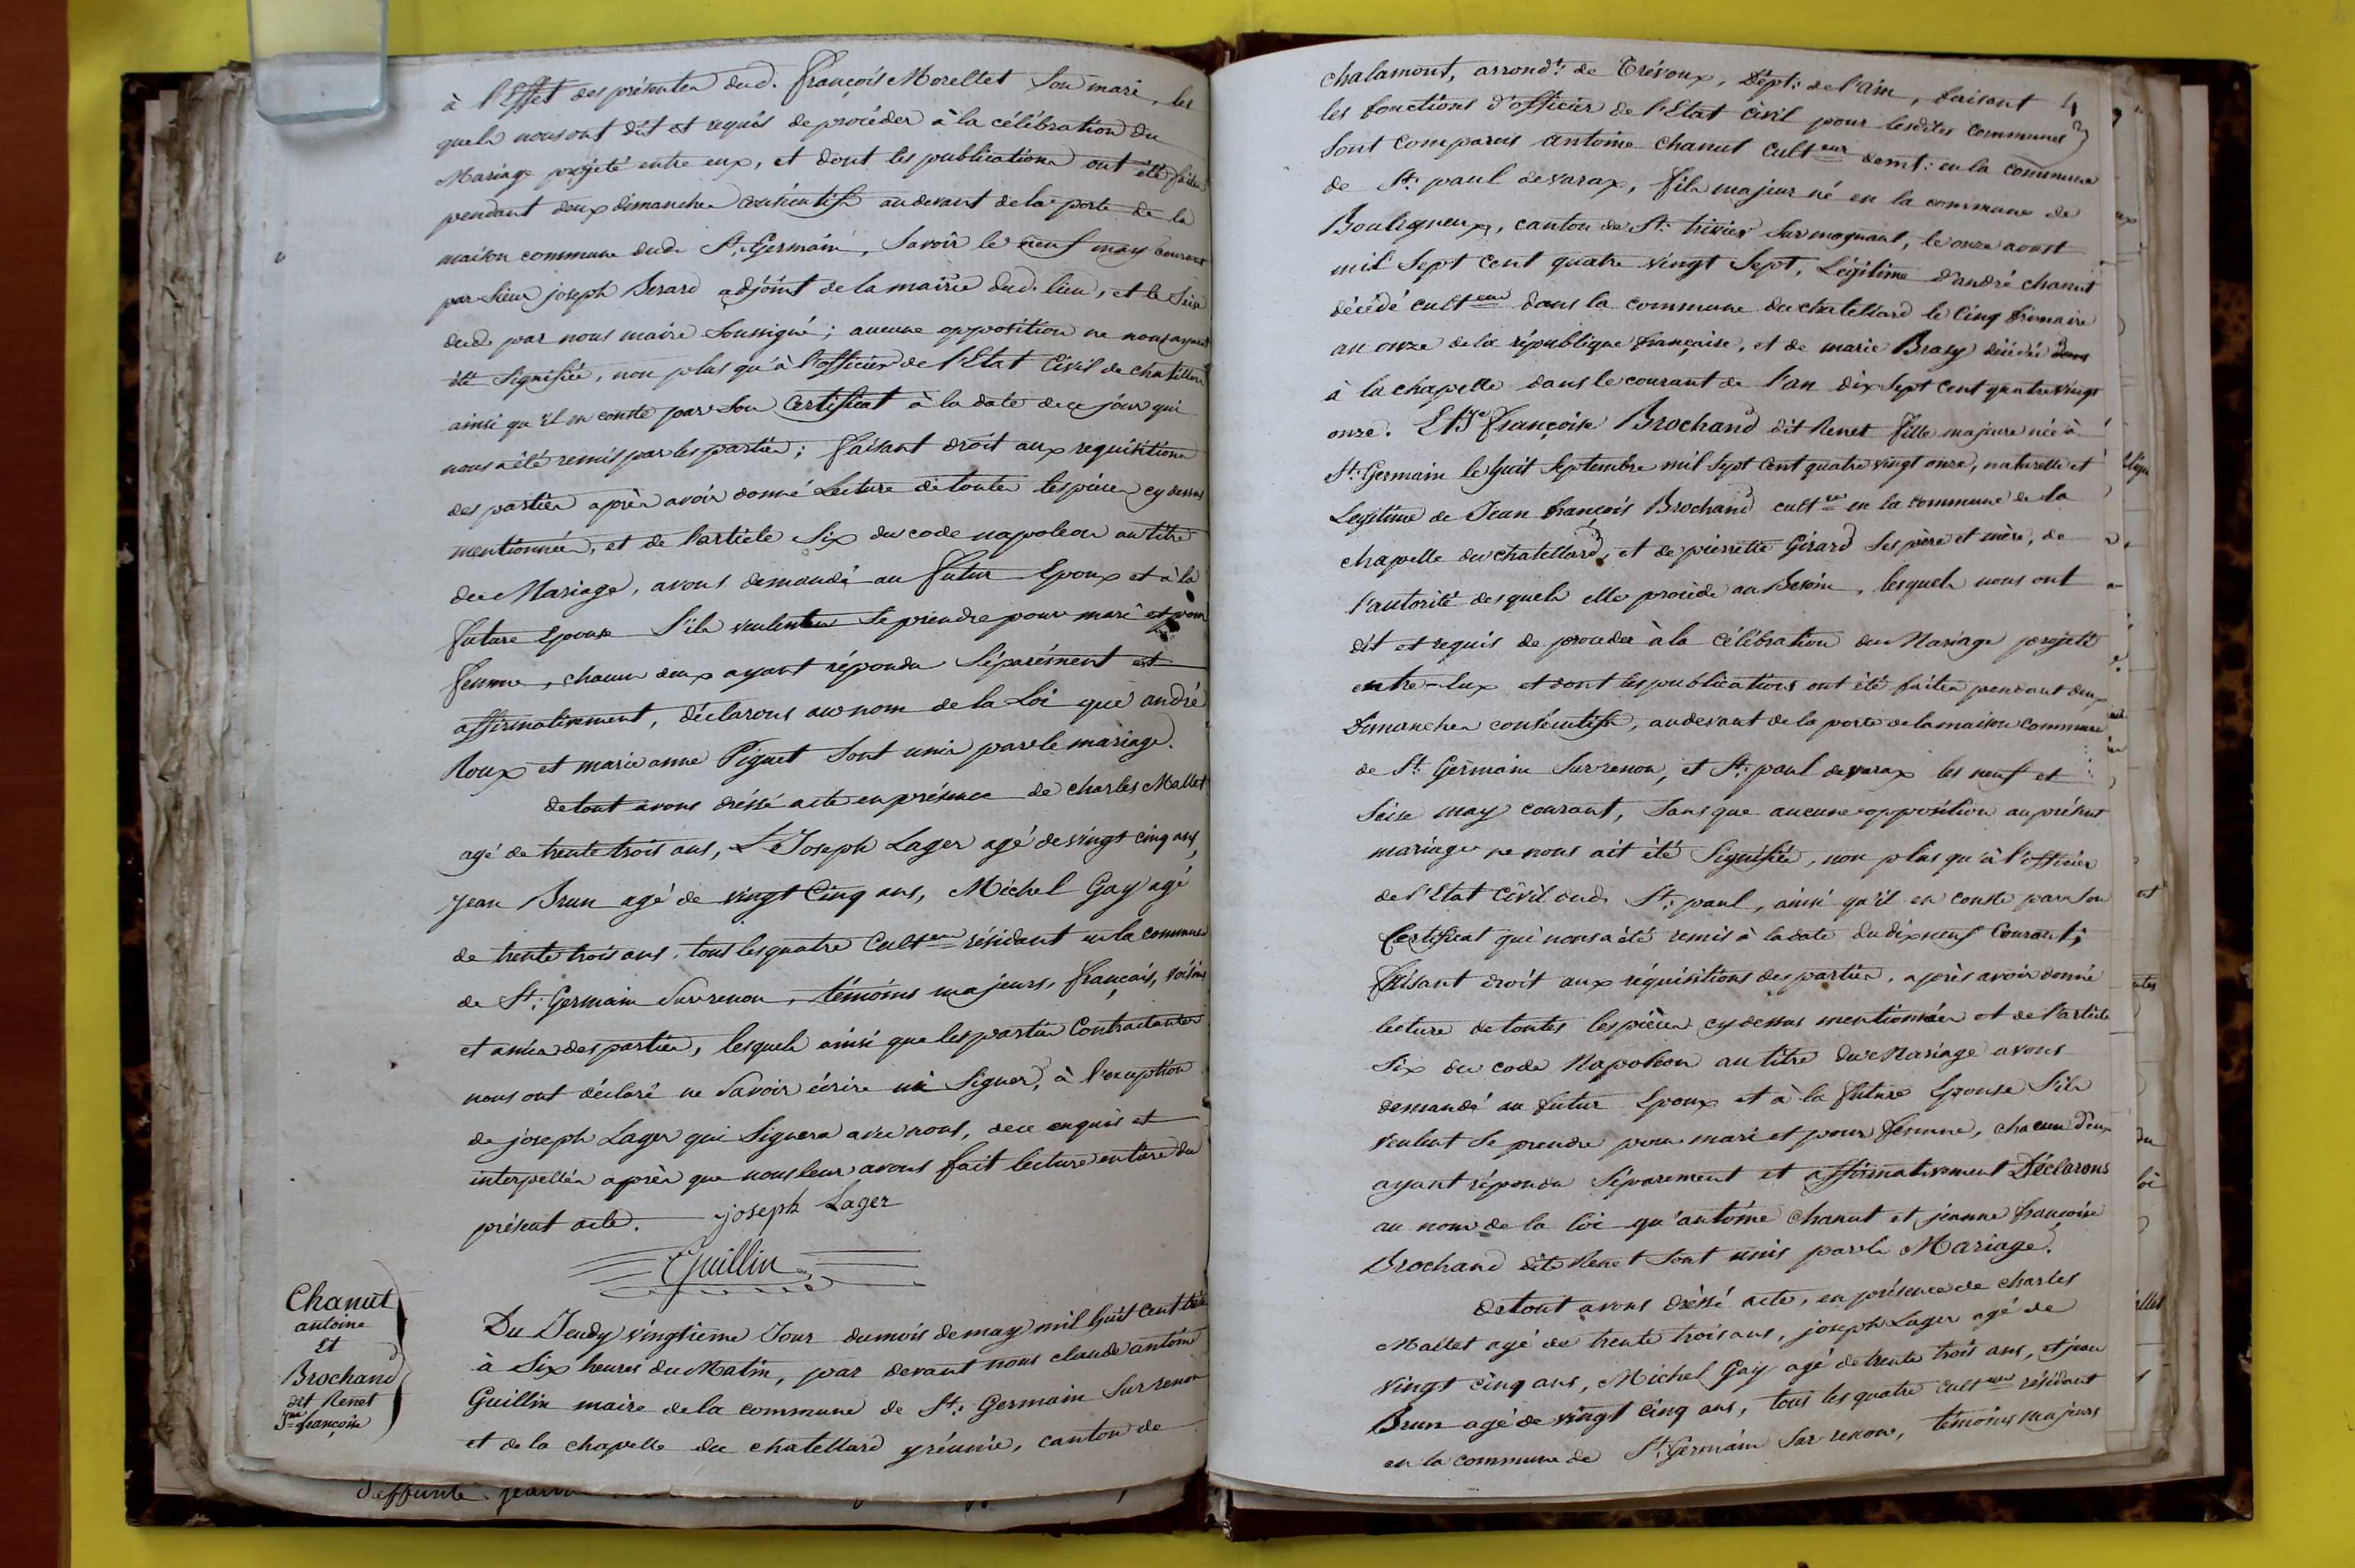 à l'Effet des présentes dud. françois Morellet Son mari, les
quels nous ont dit et requis de procéder à la célébration du
Mariage projété entre eux, et dont les publications ont été faites
pendant deux dimanches consécutifs au devant de la porte de la
maison commune dud. St. Germain, Savoir le neuf may courant
par Sieur joseph Berard adjoint de la mairie dud. lieu, et le Seize
dud. par nous maire Soussigné; aucune opposition ne nous ayant
été Signifiée, non plus qu'à l'officier de l'Etat Civil de chatillon
ainsi qu'il en conste par Son Certificat à la date de ce jour qui
nous a été remis par les parties; faisant droit aux requisitions
des parties après avoir donné Lecture de toutes les pièces cy dessus
mentionnées, et de l'article Six du code napoleon au titre
du Mariage, avons demandé au futur Epoux et à la
future Epouse S'ils veulent Se prendre pour mari et pour
femme, chacun deux ayant répondu Séparément et
affirmativement, déclarons au nom de la Loi que andré
Roux et marie anne Piguet Sont unis par le mariage.
de tout avons dréssé acte en présence de charles Mallet
agé de trente trois ans, Joseph Lager agé de vingt cinq ans,
jean Brun agé de vingt Cinq ans, Michel Gay agé
de trente trois ans, tous les quatre Culteur résidant en la commune
de St: Germain Sur renon, témoins majeurs, français, voisins
et amis des parties, lesquels ainsi que les parties Contractantes
nous ont déclaré ne Savoir écrire ni Signer, à l'exception
de joseph Lager qui Signera avec nous, de ce enquis et
interpellés après que nous leur avons fait lecture entière du
présent acte. joseph Lager
Guillin
Chanut
antoine
Et
Brochand
dit Renet
Jne françoise
Du Jeudy vingtième Jour du mois de may mil huit Cent treize
à Six heures du Matin, par devant nous claude antoine
Guillin maire de la commune de St: Germain Sur renon
et de la chapelle du chatellard y réunie, canton de
deffunte jeanne
chalamont, arrondt: de Trévoux, Dépt: de l'ain, faisant 4
les fonctions d'officier de l'Etat Civil pour lesdites communes
Sont comparus antoine chanut Culteur demt: en la commune
de St: paul de varax, fils majeur né en la commune de
Bouligneux, canton de St: trivier Sur mognant, le onze aoust
mil Sept Cent quatre vingt Sept, Légitime d'andré chanut
décédé culteur dans la commune du chatellard le Cinq frimaire
an onze de la république française, et de marie Brasy décédée
à la chapelle dans le courant de l'an dix Sept Cent quatre vingt
onze. Et Jne françoise Brochand dit Renet fille majeure née à
St: Germain le huit Septembre mil Sept Cent quatre vingt onze, naturelle et
Legitime de Jean françois Brochand cultur en la commune de la
chapelle du chatellard, et de pierrette Girard Ses père et mère, de
l'autorité desquels elle procède au Besoin, lesquels nous ont
dit et requis de proceder à la célébration du Mariage projeté
entre-Eux et dont les publications ont été faites pendant deux
Dimanches consécutifs, au devant de la porte de la maison commune
de St: Germain Sur renon, et St: paul de varax les neuf et
Seise may courant, Sans que aucune opposition au présent
mariage ne nous ait été Signifiée, non plus qu'à l'officier
de l'Etat Civil dud. St: paul, ainsi qu'il en conste par Son
Certificat qui nous a été remis à la date du dix neuf Courant;
faisant droit aux réquisitions des parties, après avoir donné
lecture de toutes les pièces cy dessus mentionnées et de l'article
Six du code Napoléon au titre du Mariage avons
demandé au futur Epoux et à la future Epouse S'ils
veulent Se prendre pour mari et pour femme, chacun d'eux
ayant répondu Séparement et affirmativement Déclarons
au nom de la loi qu'antoine chanut et jeanne françoise
Brochand dite Renet Sont unis par le Mariage.
de tout avons dréssé acte, en présence de charles
Mallet agé de trente trois ans, joseph Lager agé de
vingt cinq ans, Michel Gay agé de trente trois ans, et jean
Brun agé de vingt cinq ans, tous les quatre culteur résidant
en la commune de St: Germain Sur renon, témoins majeurs